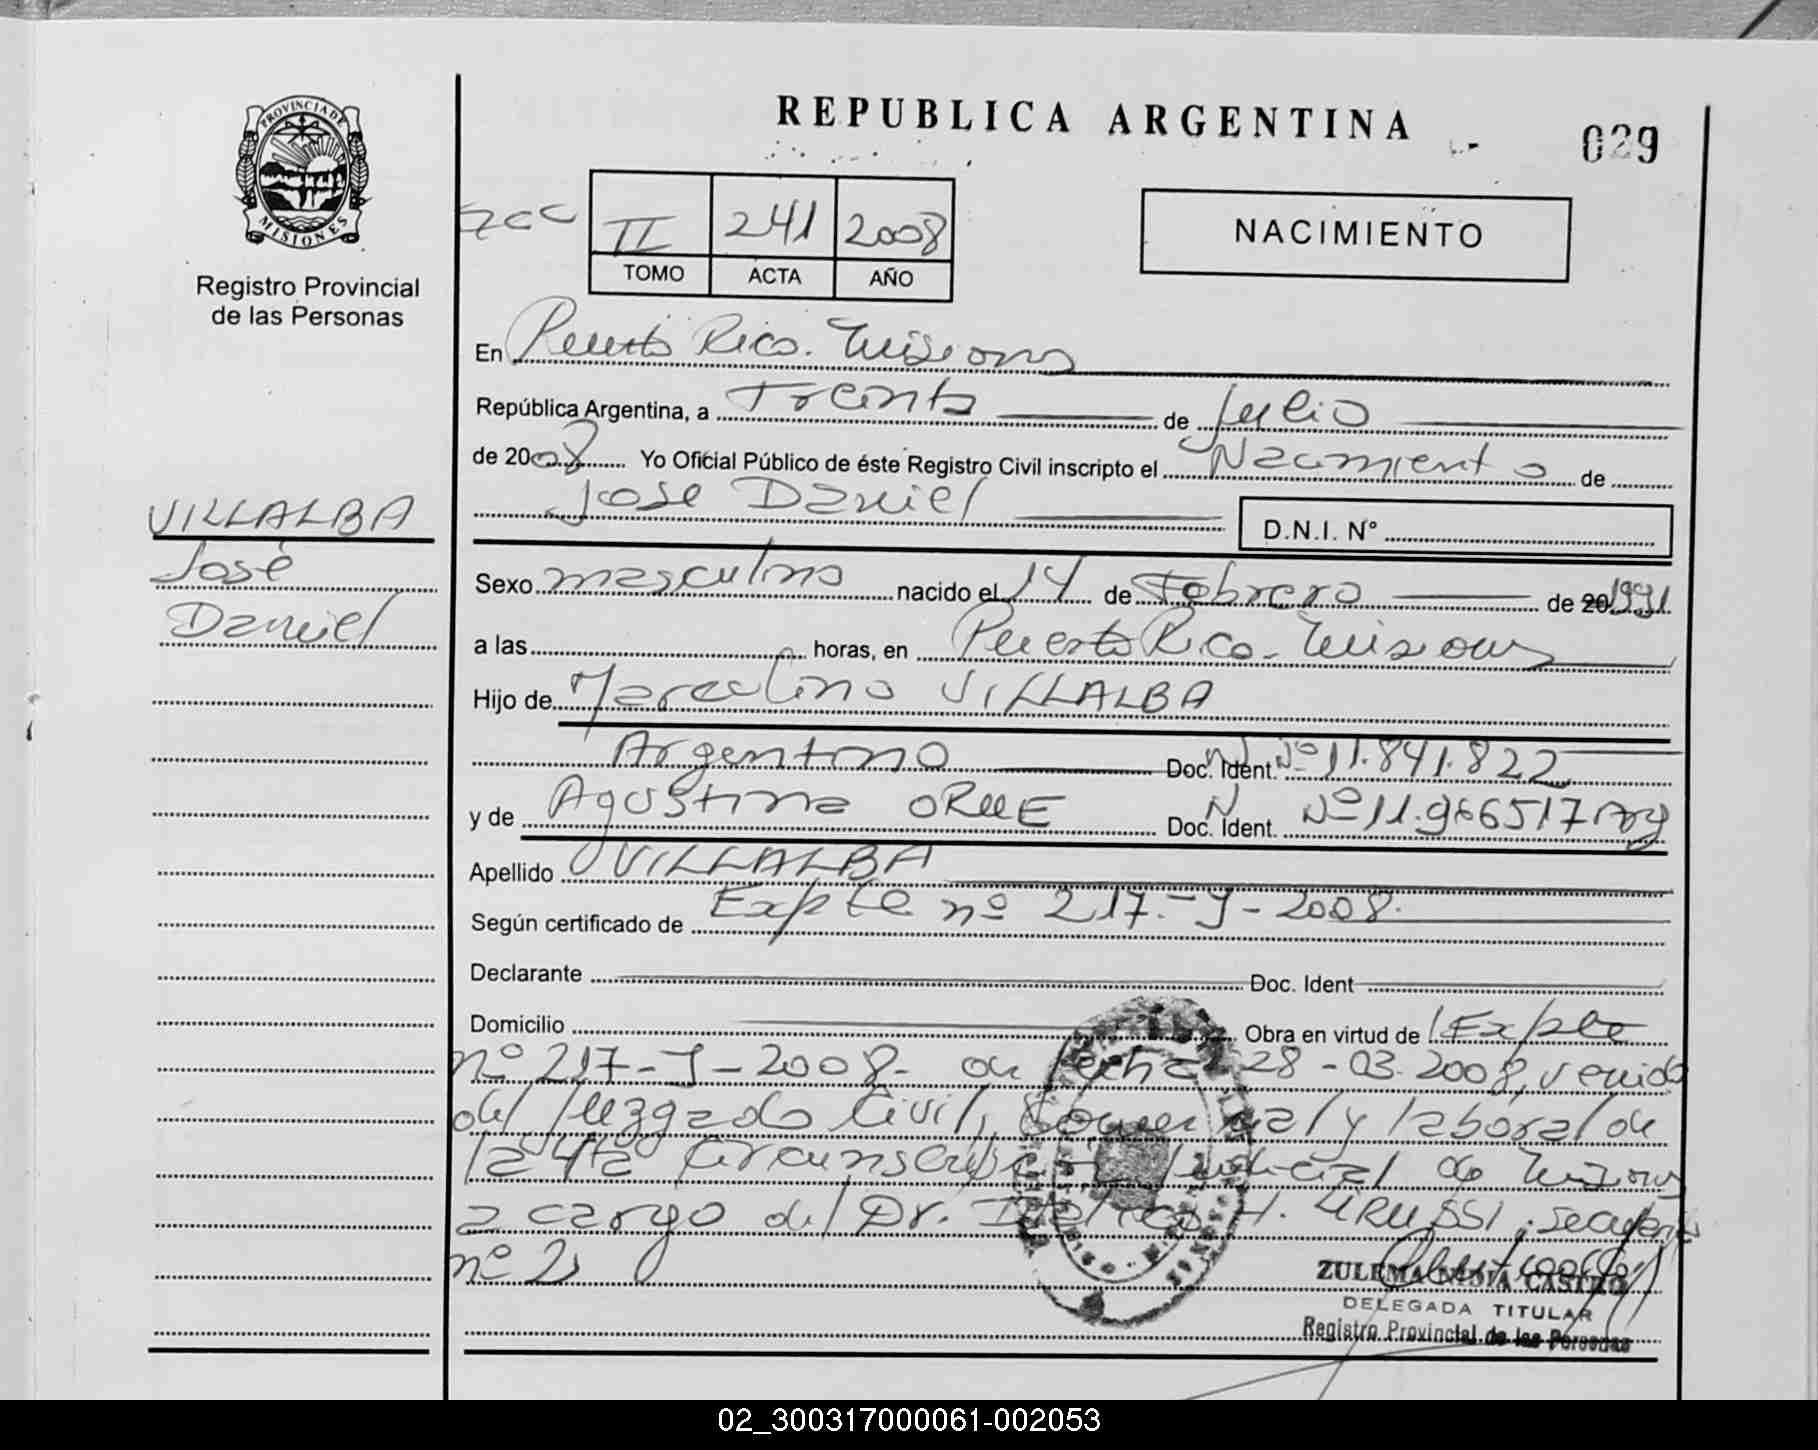 REPUBLICA ARGENTINA
029
PROVINCIA DE
MISIONES
Registro Provincial
de las Personas
II 241 2008
TOMO ACTA AÑO
NACIMIENTO
En Puerto Rico. Misiones
República Argentina, a Treinta de Julio
de 2008 Yo Oficial Público de éste Registro Civil inscripto el Nacimiento de
José Daniel D.N.I. N°
VILLALBA
José
Daniel
Sexo masculino nacido el 14 de Febrero de 20 1991
a las horas, en Puerto Rico. Misiones
Hijo de Marcelino VILLALBA
Argentino Doc. Ident. N° 11.841.822
y de Agustina ORUE Doc. Ident. N° 11.966517 Arg
Apellido VILLALBA
Según certificado de Expte nº 217.-J-2008.
Declarante Doc. Ident
Domicilio Obra en virtud de Expte
nº 217-J-2008- de fecha 28-03.2008, venido
del Juzgado Civil, Comercial y laboral de
la 4ta Circunscripción Judicial de Misiones
a cargo del Dr. H. secretaria
nº 2
ZULEMA CASTRO
DELEGADA TITULAR
Registro Provincial de las Personas
02_300317000061-002053